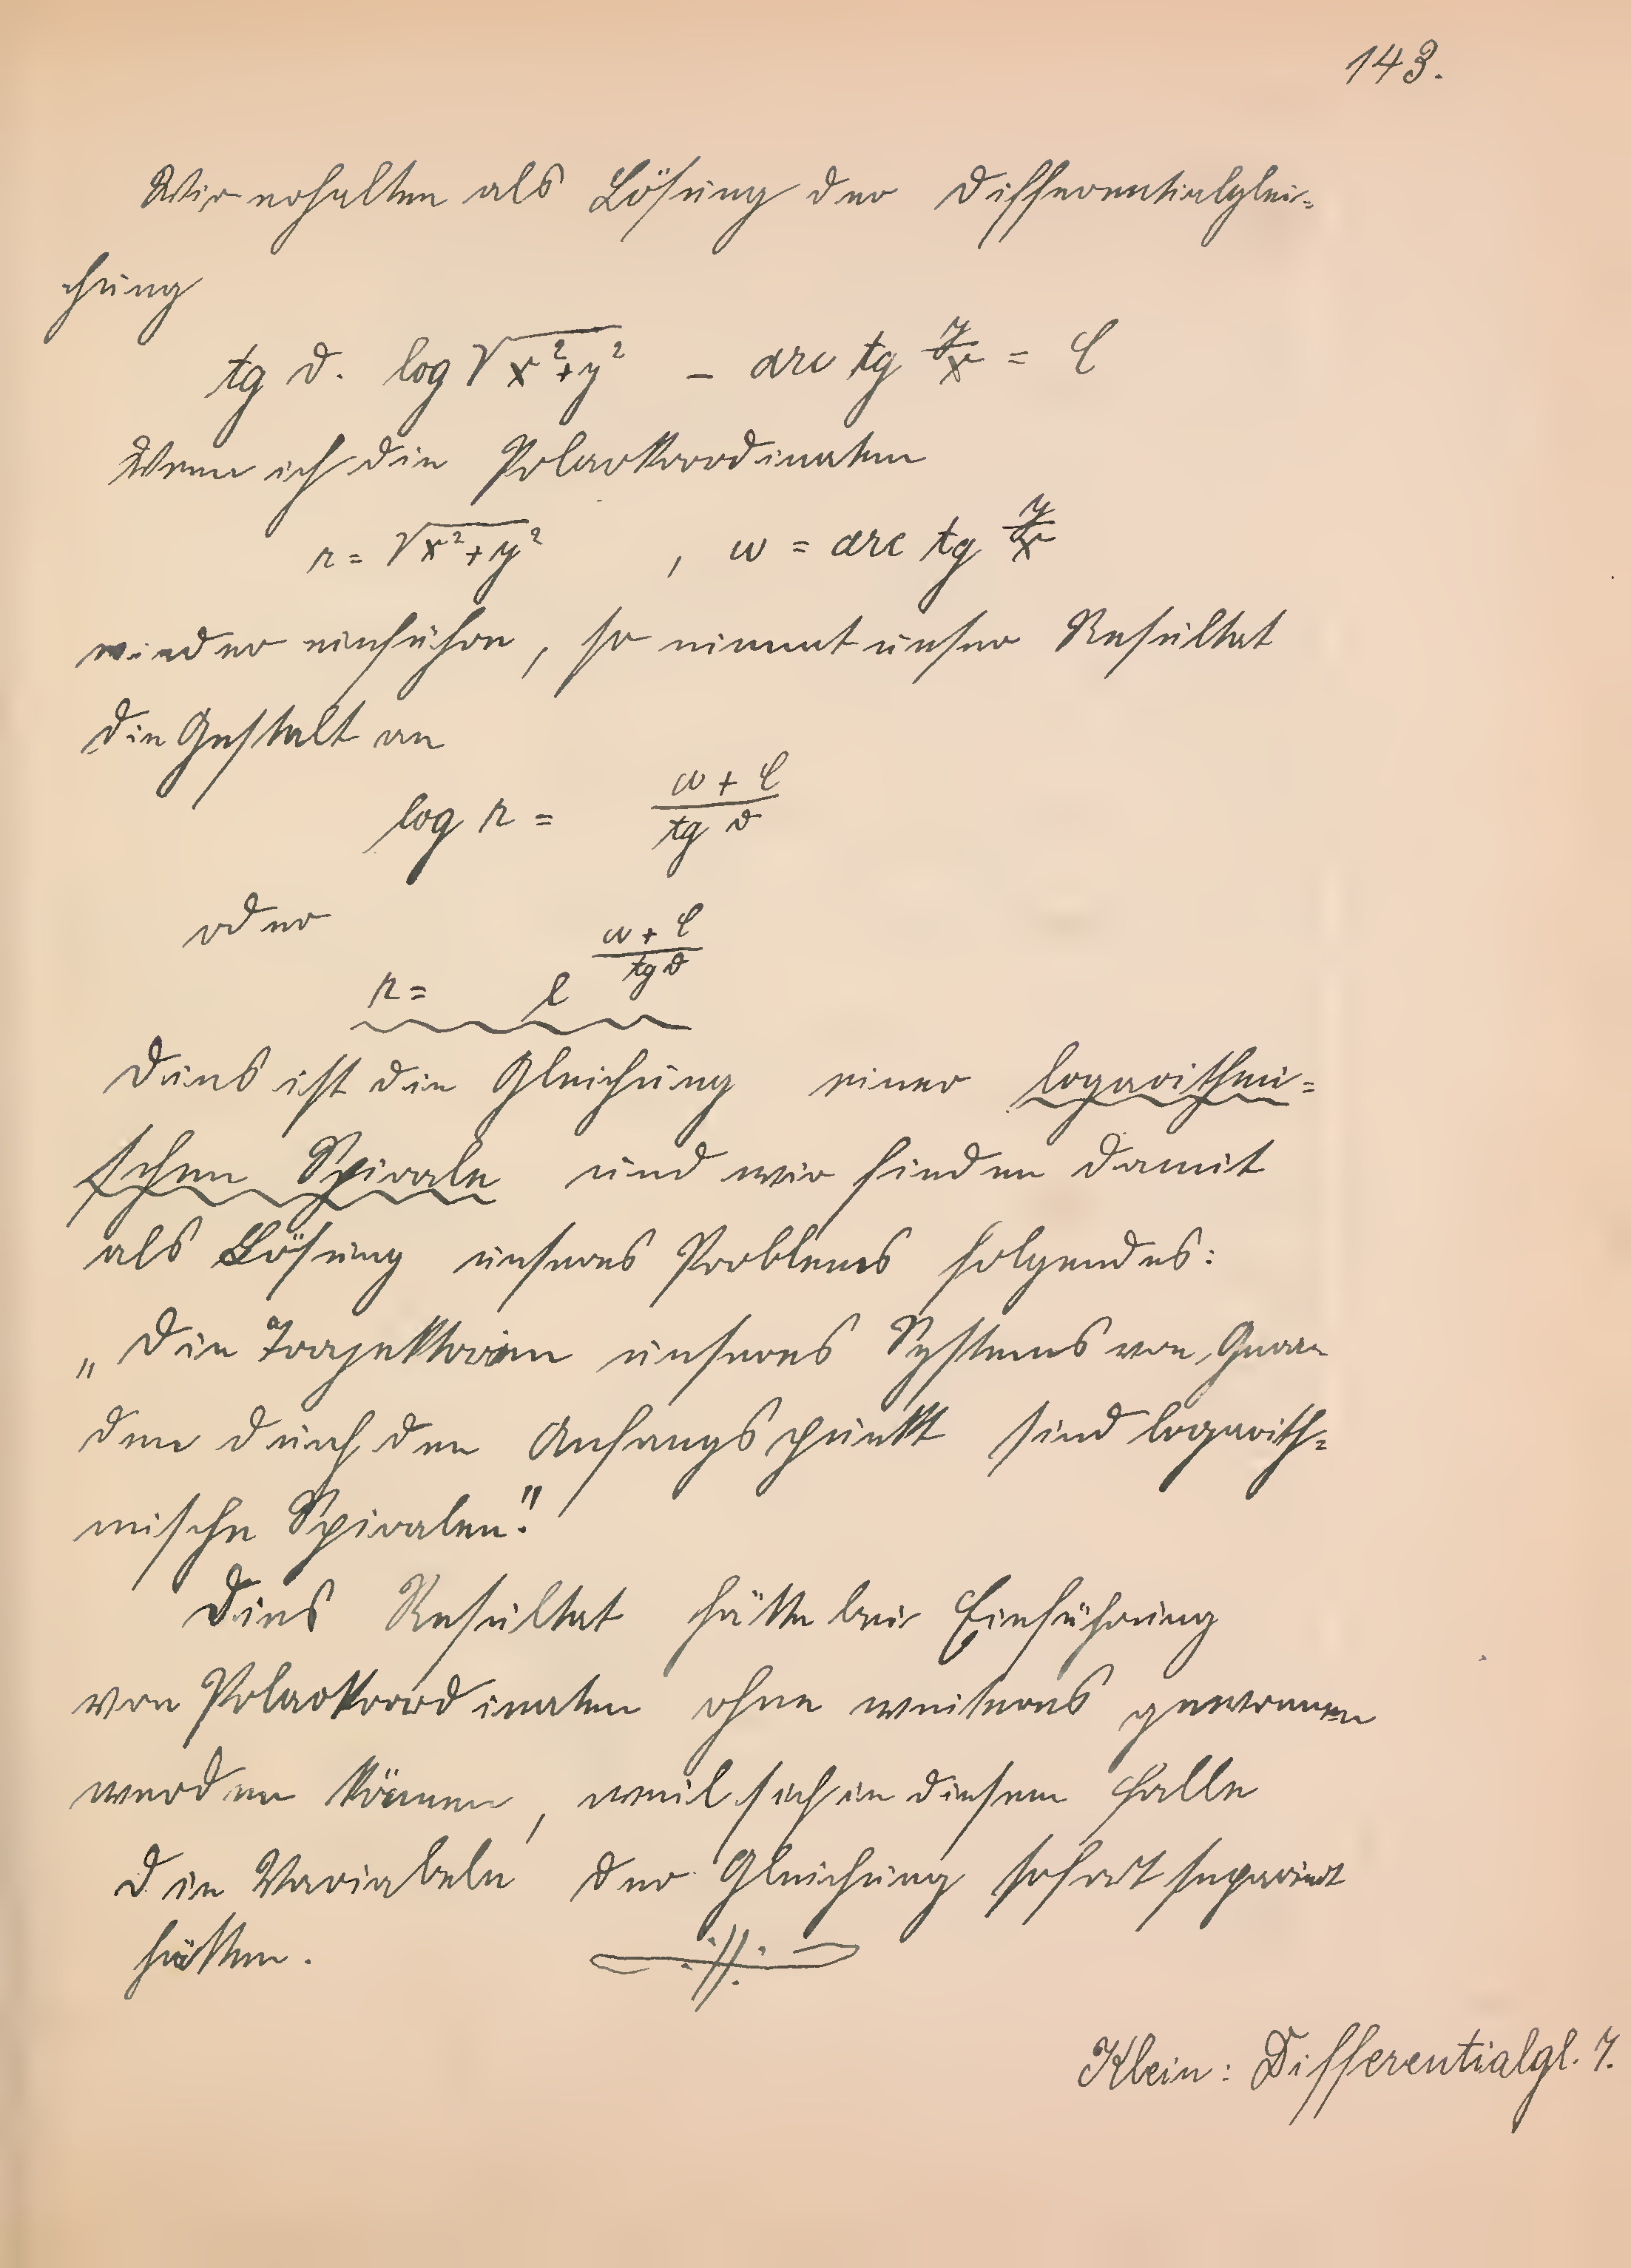 143.
Wir erhalten als Lösung der Differentialglei-
chung
tg ϑ. log √x²+y² - arc tg y/x = C
Wenn ich die Polarkoordinaten
r = √x²+y² , ω = arc tg y/x
wieder einführe, so nimmt unser Resultat
die Gestalt an
log r = (ω + C)/(tg ϑ)
oder
r = e^((ω + C)/(tg ϑ))
Dies ist die Gleichung einer logarithmi-
schen Spirale und wir finden damit
als Lösung unseres Problems folgendes:
„Die Trajektorien unseres Systems von Gera-
den durch den Anfangspunkt sind logarith-
mische Spiralen."
Dies Resultat hätte bei Einführung
von Polarkoordinaten ohne weiteres gewonnen
werden können, weil sich in diesem Falle
die Variabeln der Gleichung sofort separiert
hätten.
Klein: Differentialgl. I.